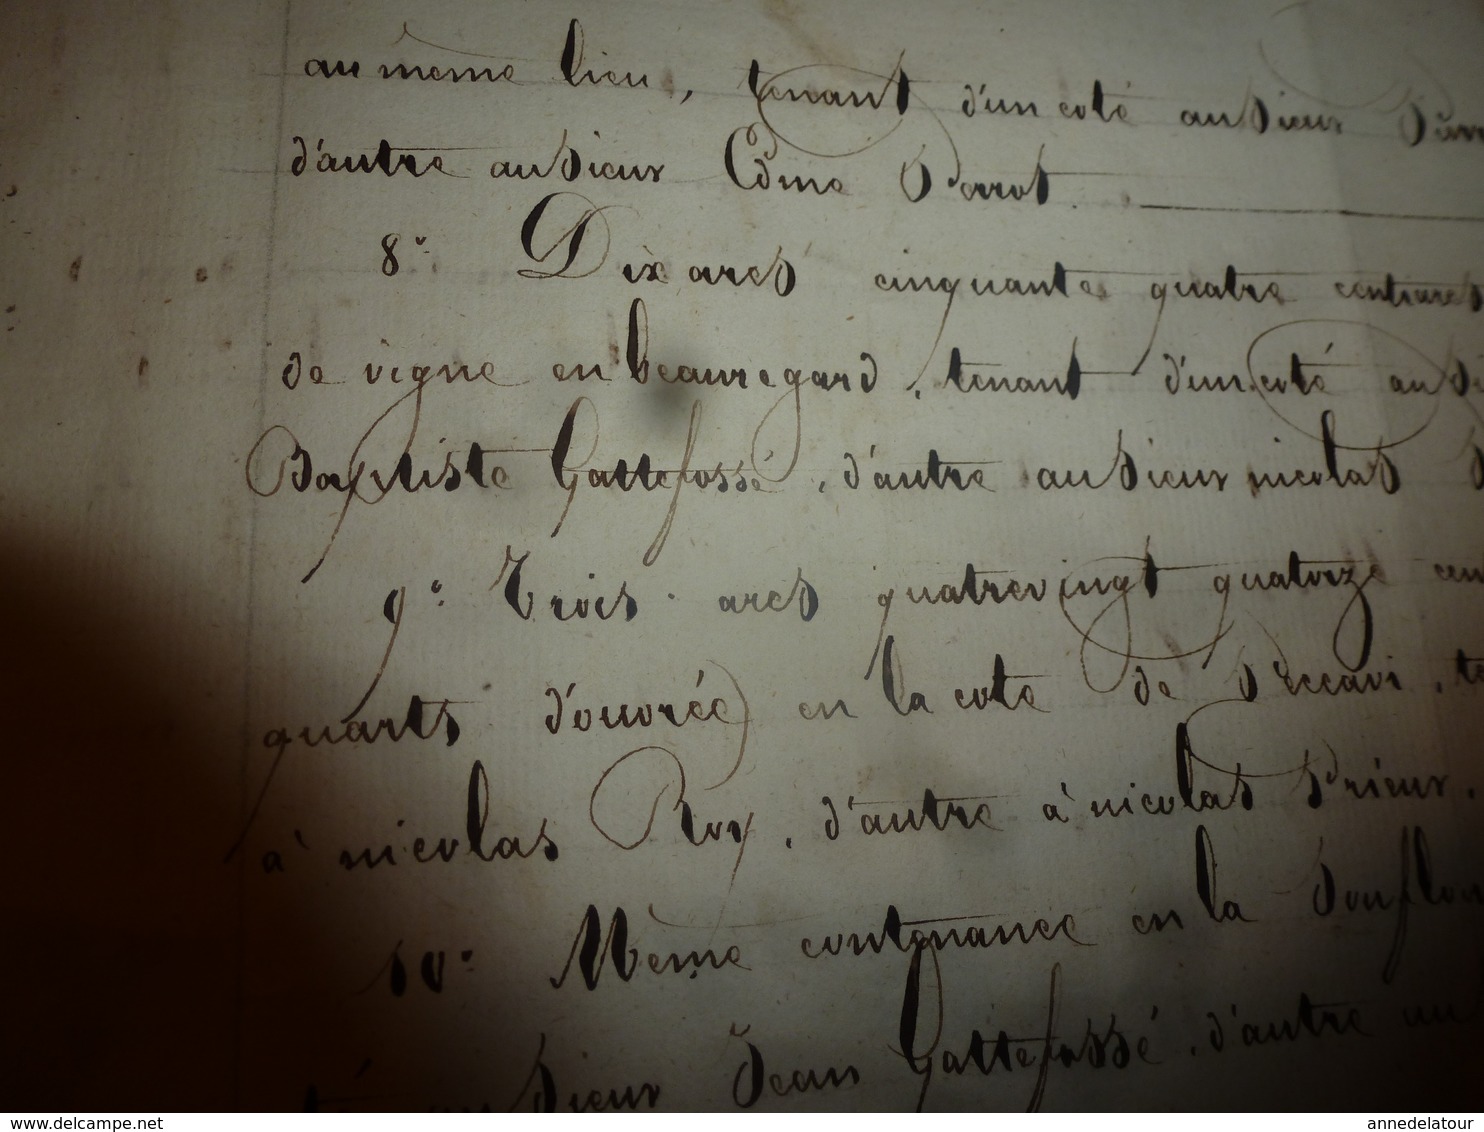 au même lieu, tenant d'un coté au Sieur
d'autre au Sieur Edme Perrot.
8° Dix ares cinquante quatre centiares
de vigne en beauregard, tenant d'un coté au
Baptiste Gattefossé, d'autre au Sieur nicolas
9° Trois ares quatrevingt quatorze cen
quarts d'ouvrée) en la cote de Peccavi, te
à nicolas Roy, d'autre à nicolas Prieur.
10° Même contenance en la
té au Sieur Jean Gattefossé, d'autre au
annedelatour